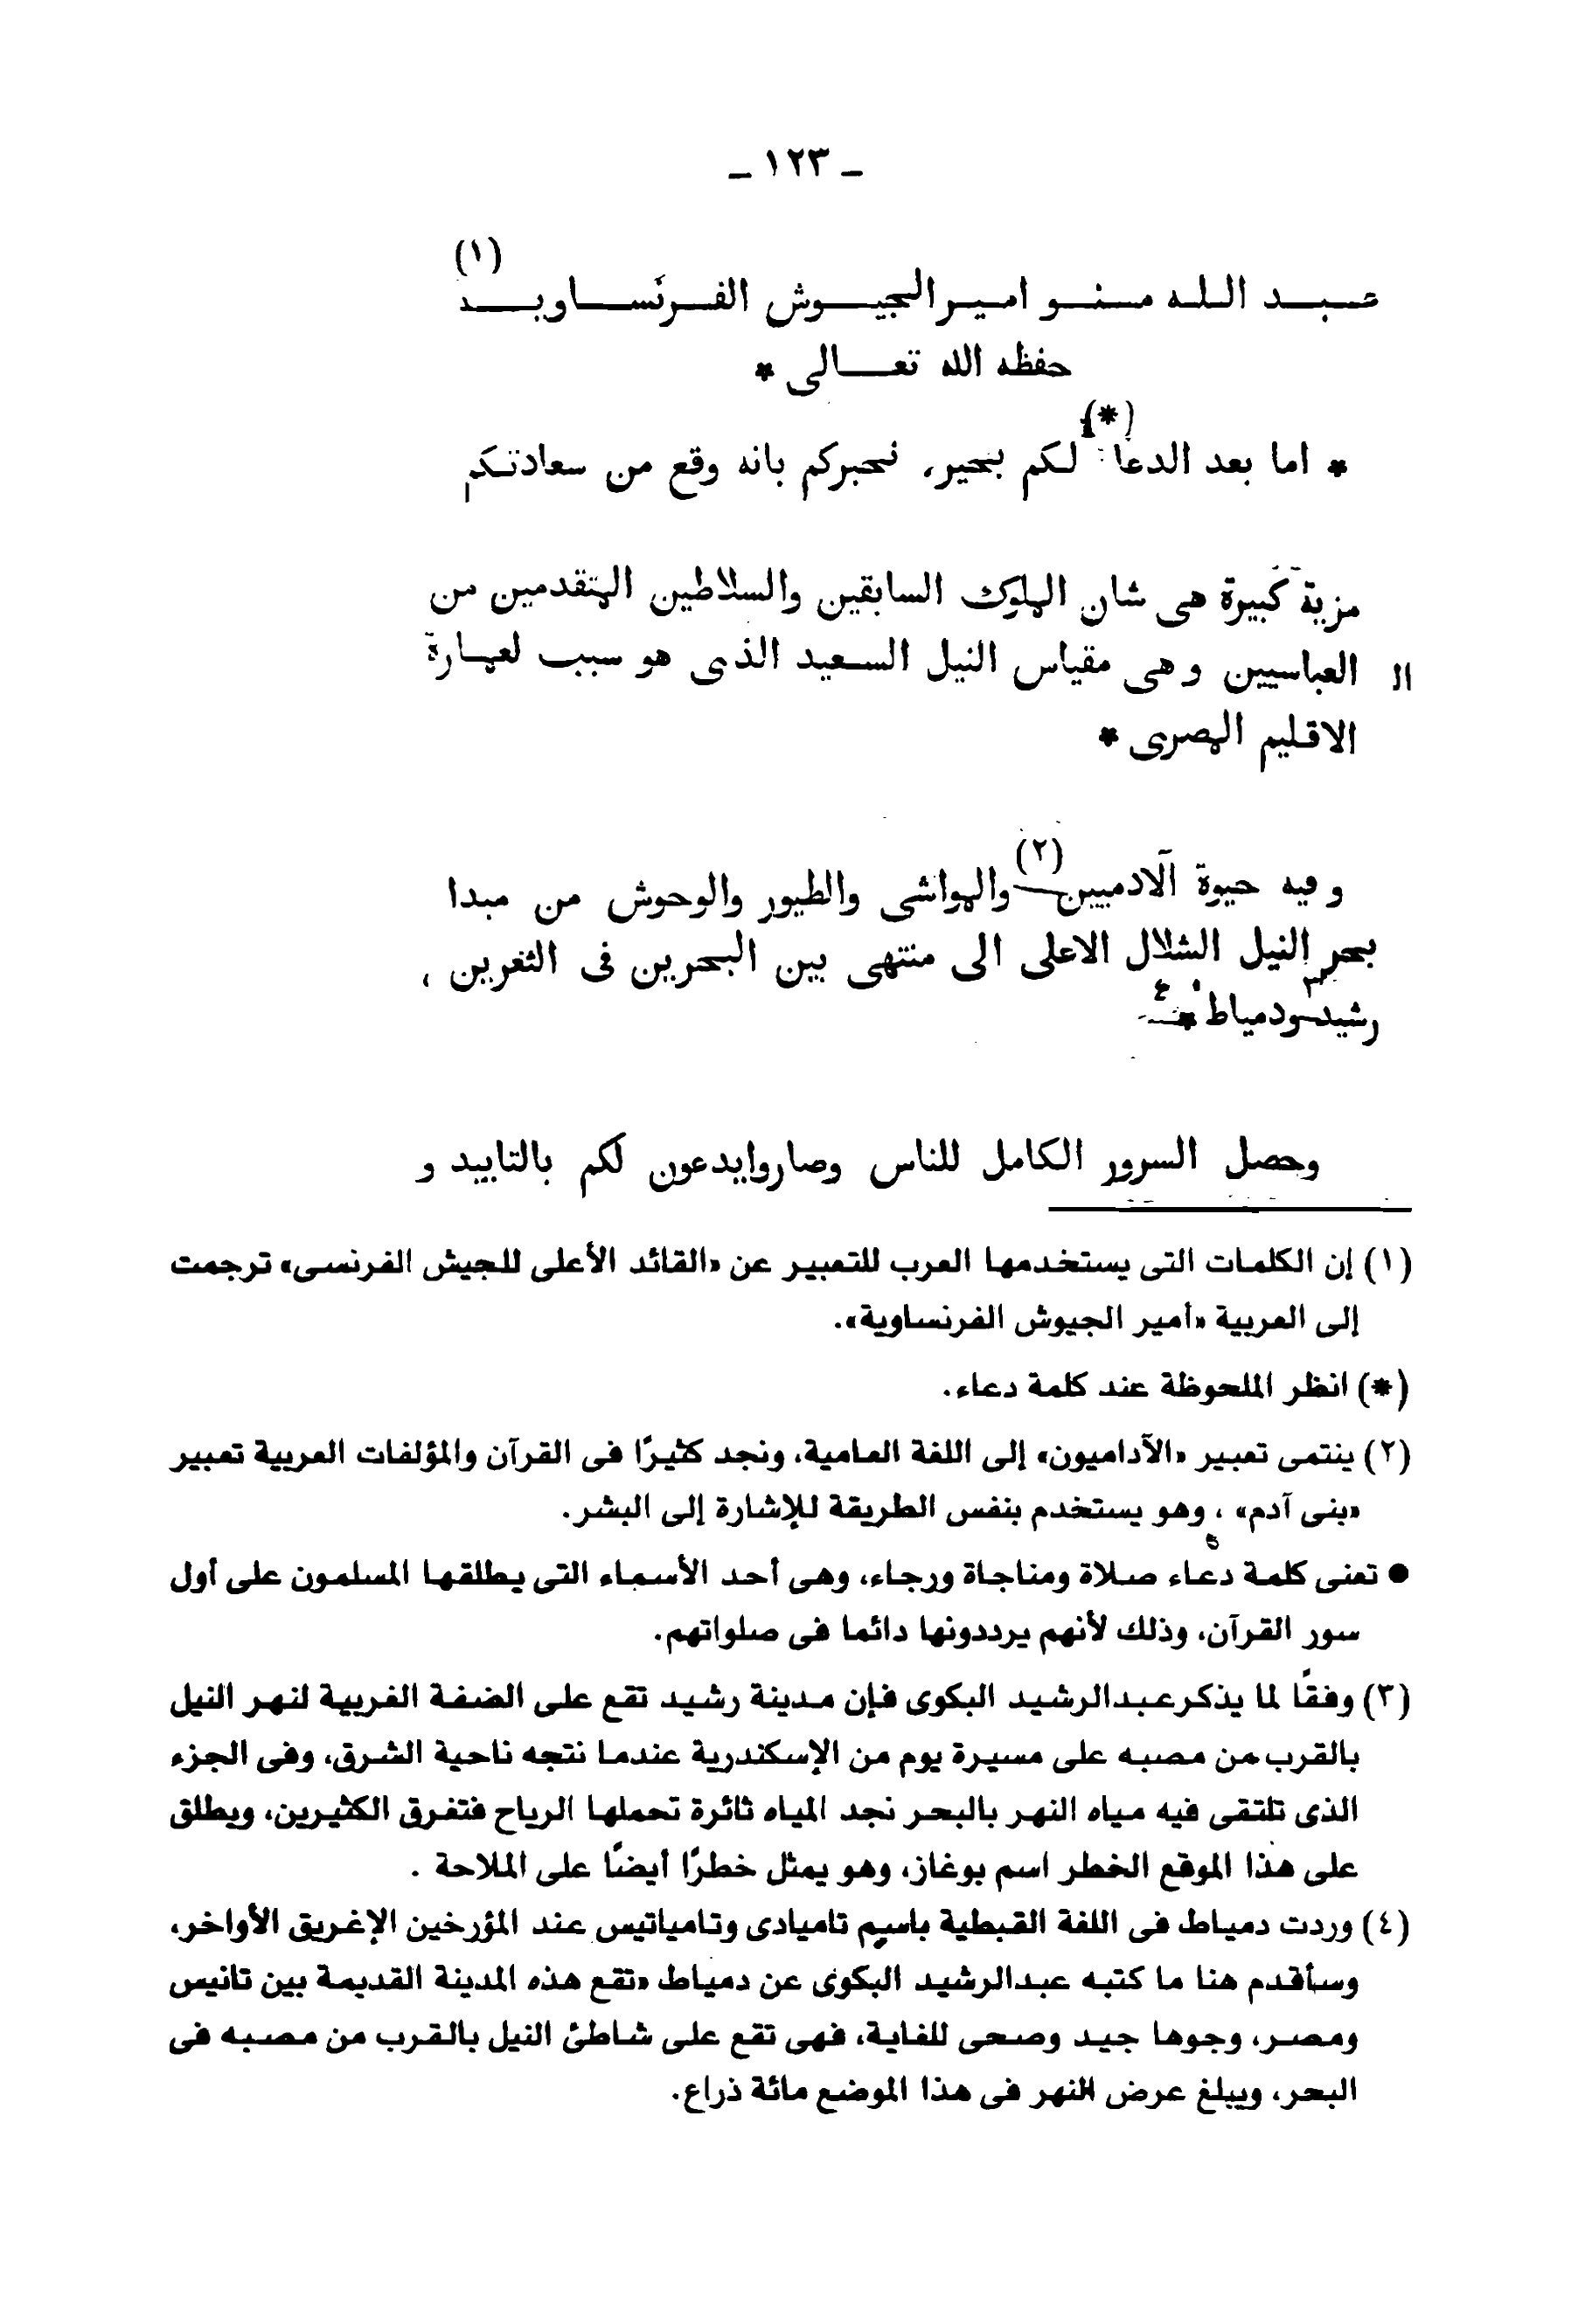 ـ ١٢٣ ـ
عبد الله منو امير الجيوش الفرنساويه (١)
حفظه الله تعالى *
* اما بعد الدعا (*) لكم بخير، نخبركم بانه وقع من سعادتكم
مزية كبيرة هى شان الملوك السابقين والسلاطين المتقدمين من
ال العباسيين وهى مقياس النيل السعيد الذى هو سبب لعمارة
الاقليم المصرى *
وفيه حيوة آلادميين (٢) والمواشى والطيور والوحوش من مبدا
بحر النيل الشلال الاعلى الى منتهى بين البحرين فى الثغرين ،
رشيد ٣ ودمياط ٤ *
وحصل السرور الكامل للناس وصاروا يدعون لكم بالتاييد و
(١) إن الكلمات التى يستخدمها العرب للتعبير عن «القائد الأعلى للجيش الفرنسى» ترجمت
إلى العربية «أمير الجيوش الفرنساوية».
(*) انظر الملحوظة عند كلمة دعاء.
(٢) ينتمى تعبير «الآداميون» إلى اللغة العامية، ونجد كثيرًا فى القرآن والمؤلفات العربية تعبير
«بنى آدم» ، وهو يستخدم بنفس الطريقة للإشارة إلى البشر.
● تعنى كلمة دعاء صلاة ومناجاة ورجاء، وهى أحد الأسماء التى يطلقها المسلمون على أول
سور القرآن، وذلك لأنهم يرددونها دائما فى صلواتهم.
(٣) وفقًا لما يذكر عبدالرشيد البكوى فإن مدينة رشيد تقع على الضفة الغربية لنهر النيل
بالقرب من مصبه على مسيرة يوم من الإسكندرية عندما نتجه ناحية الشرق، وفى الجزء
الذى تلتقى فيه مياه النهر بالبحر نجد المياه ثائرة تحملها الرياح فتفرق الكثيرين، ويطلق
على هذا الموقع الخطر اسم بوغاز، وهو يمثل خطرًا أيضًا على الملاحة .
(٤) وردت دمياط فى اللغة القبطية باسم تاميادى وتامياتيس عند المؤرخين الإغريق الأواخر،
وسأقدم هنا ما كتبه عبدالرشيد البكوى عن دمياط «تقع هذه المدينة القديمة بين تانيس
ومصر، وجوها جيد وصحى للغاية، فهى تقع على شاطئ النيل بالقرب من مصبه فى
البحر، ويبلغ عرض النهر فى هذا الموضع مائة ذراع.